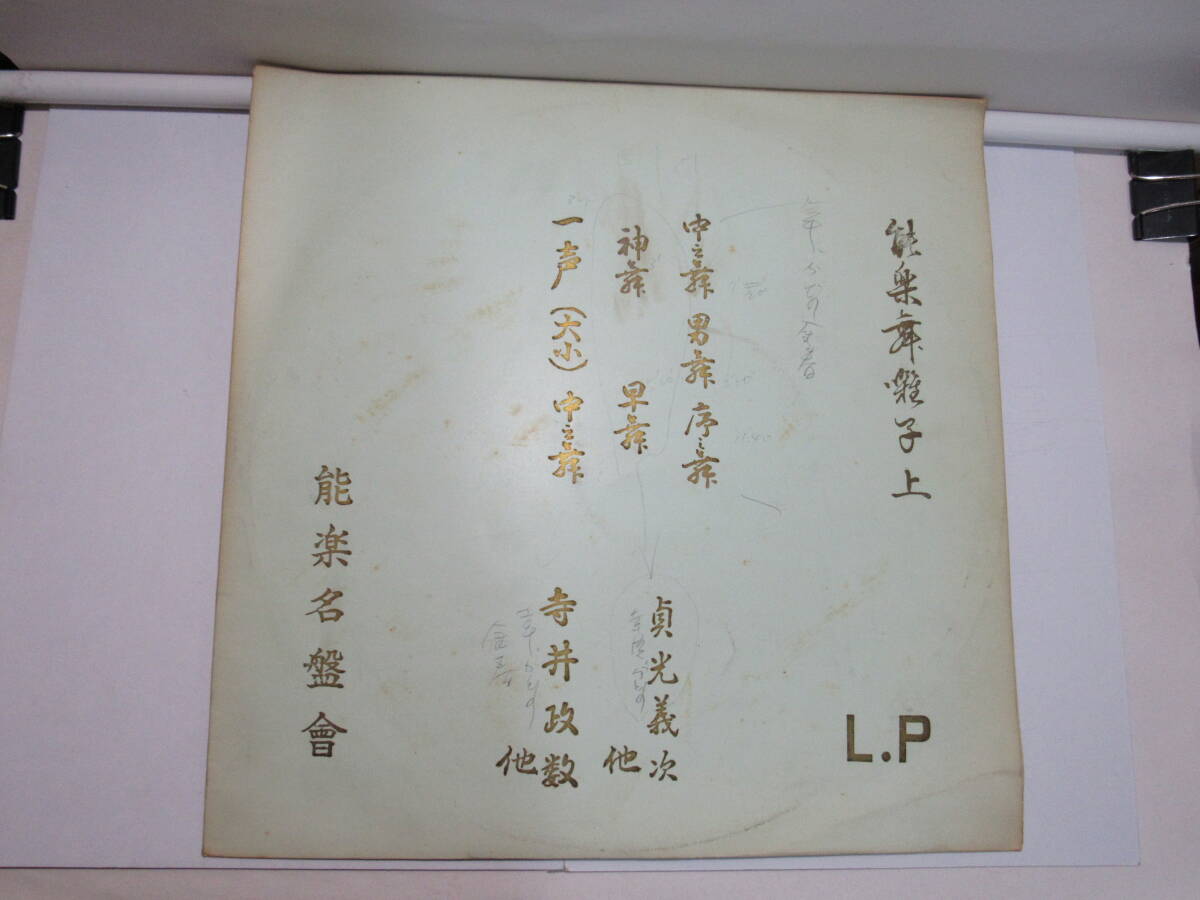 能楽舞囃子 上
中之舞 男舞 序之舞
神舞 早舞
貞光義次
他
一声(大小) 中之舞
寺井政数
他
能楽名盤會
L.P